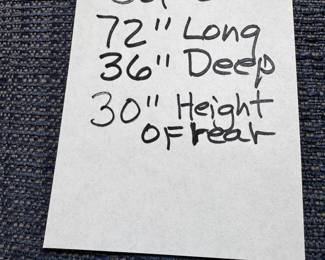 72" Long
36" Deep
30" Height
of rear